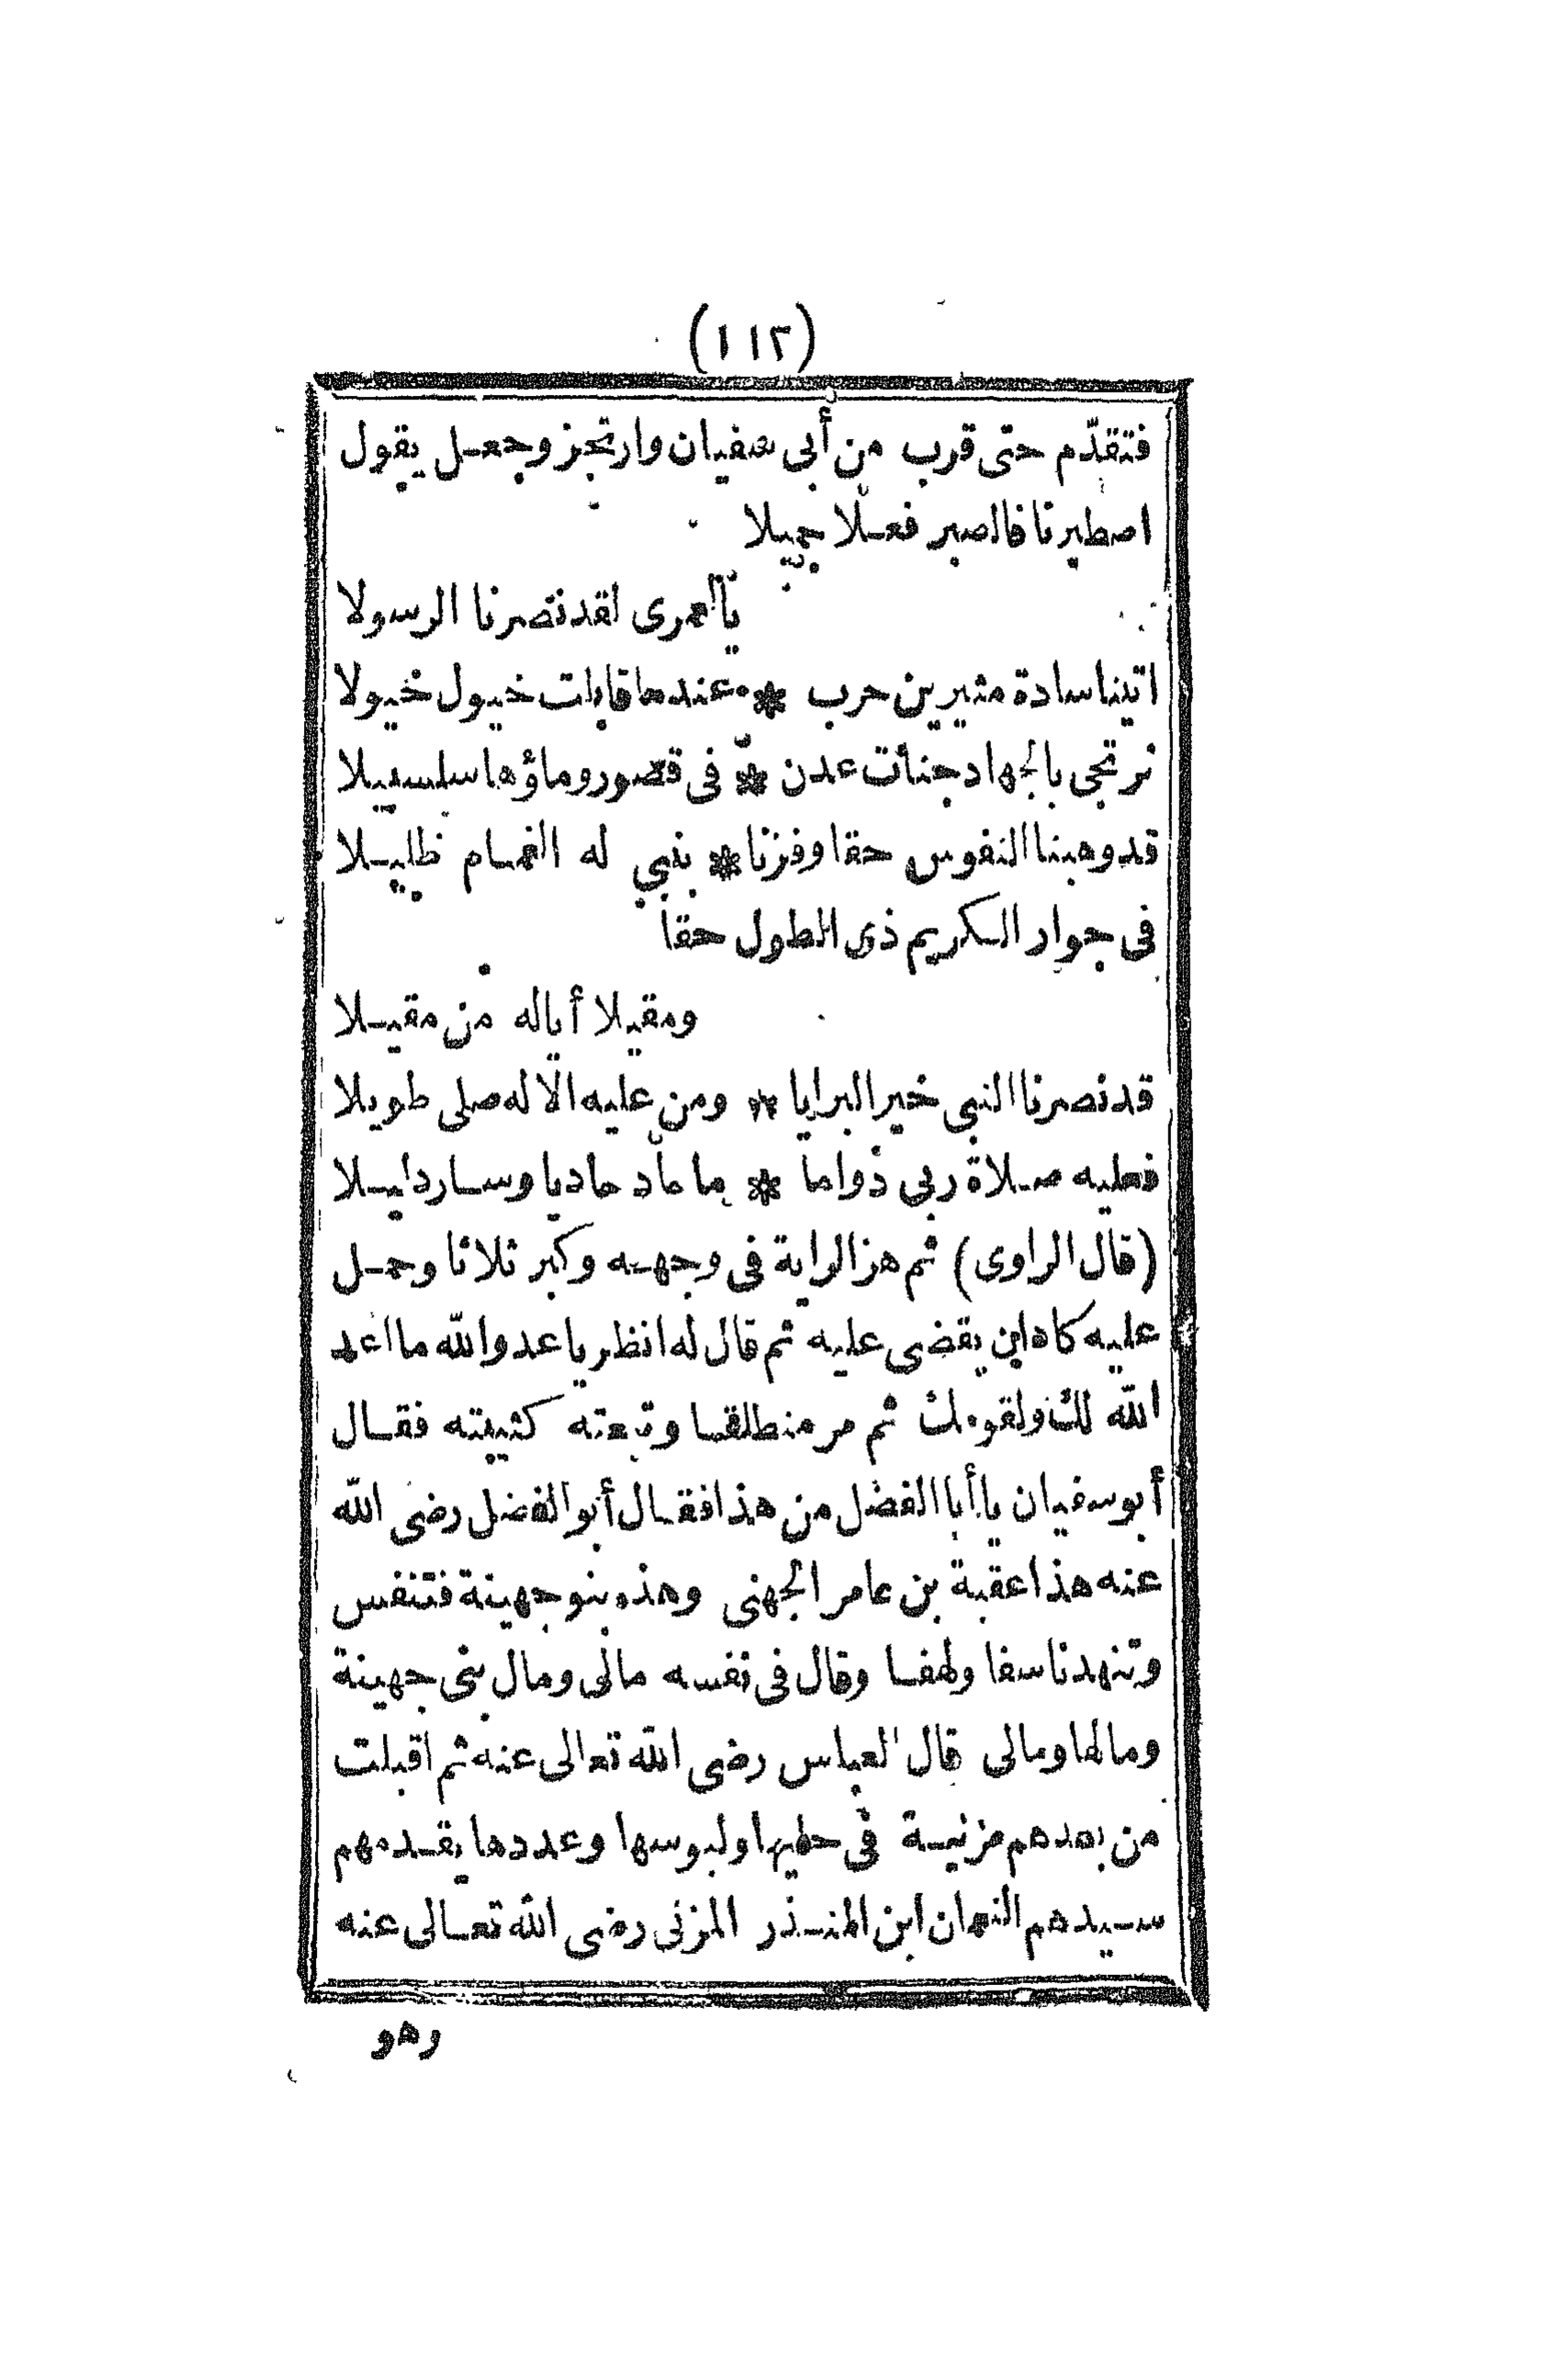 (١١٢)
فتقدّم حتى قرب من أبى سفيان وارتجز وجعل يقول
اصطبرنا فالصبر فعلا جميلا
يالعمرى لقد نصرنا الرسولا
اتينا سادة مثيرين حرب * عندما قابلت خيول خيولا
نرتجى بالجهاد جنات عدن * فى قصور وماؤها سلسبيلا
قد وهبنا النفوس حقا وفزنا * بنبى له الغمام ظليلا
فى جوار الكريم ذى الطول حقا
ومقيلا أياله من مقيلا
قد نصرنا النبى خير البرايا * ومن عليه الاله صلى طويلا
فعليه صلاة ربى دواما * ما حاد حاديا وسار دليلا
(قال الراوى) ثم هز الراية فى وجهه وكبر ثلاثا وحمل
عليه كاد ان يقضى عليه ثم قال له انظر يا عدو الله ما اعد
الله لك ولقومك ثم مر منطلقا وتبعته كتيبته فقال
أبو سفيان يا أبا الفضل من هذا فقال أبو الفضل رضى الله
عنه هذا عقبة بن عامر الجهنى وهذه بنو جهينة فتنفس
وتنهد تاسفا ولهفا وقال فى نفسه مالى ومال بنى جهينة
ومالها ومالى قال العباس رضى الله تعالى عنه ثم اقبلت
من بعدهم مزنية فى حليها ولبوسها وعددها يقدمهم
سيدهم النعمان ابن المنذر المزنى رضى الله تعالى عنه
وهو